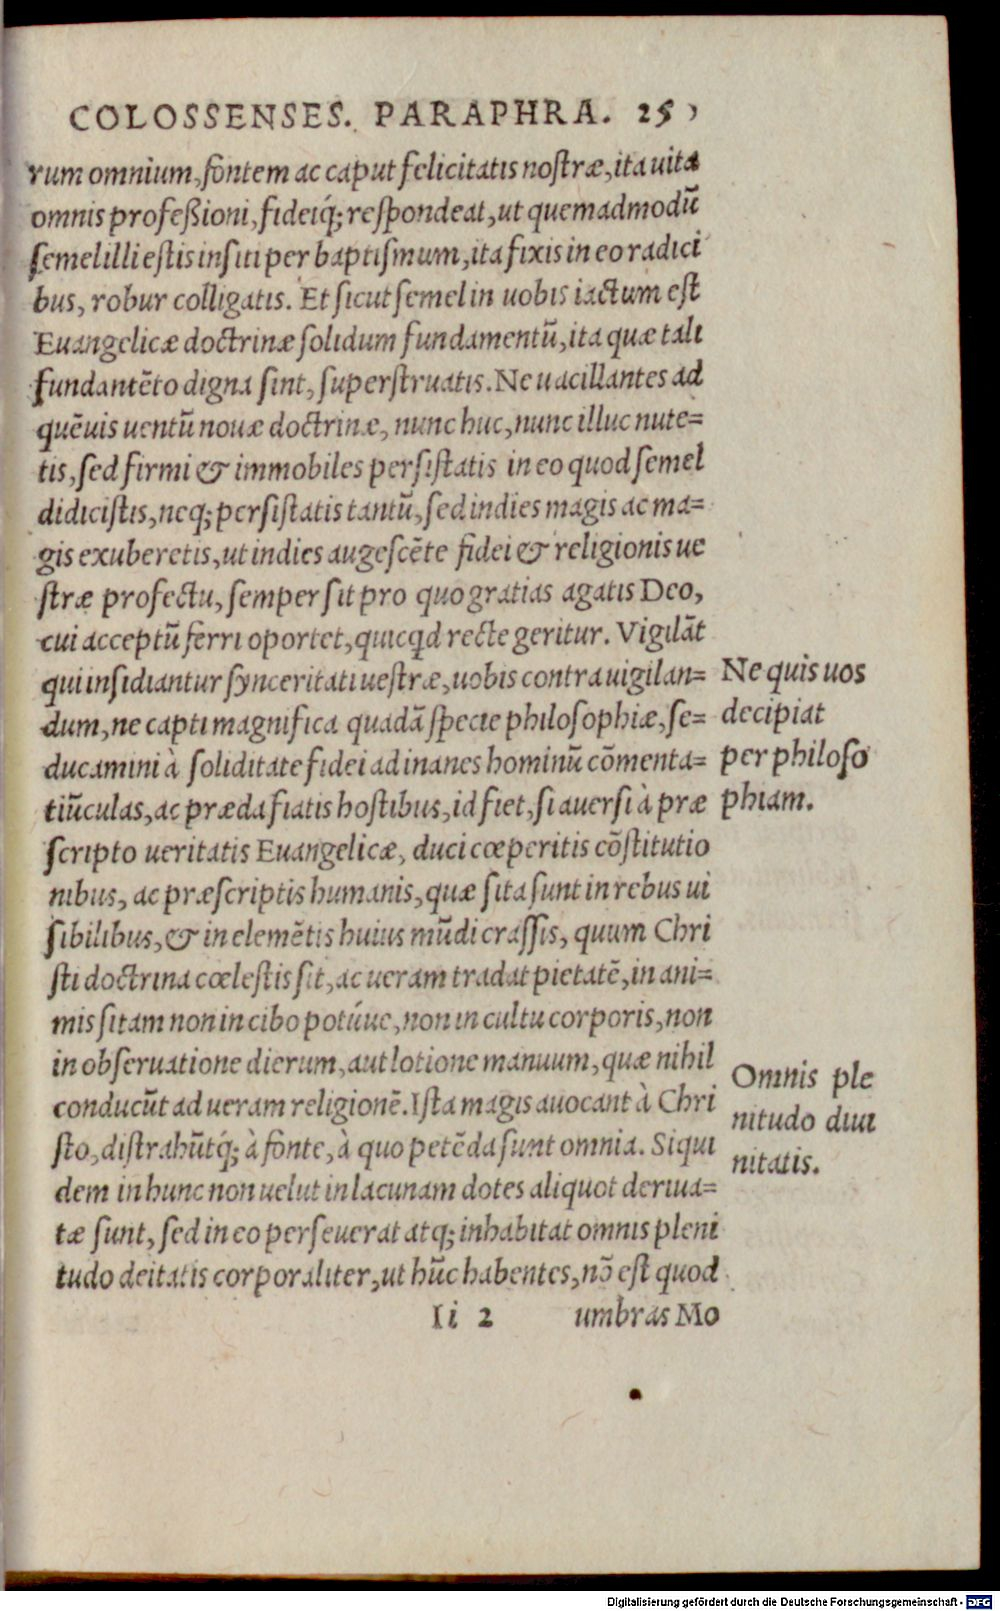 COLOSSENSES. PARAPHRA. 25
rum omnium, fontem ac caput felicitatis nostræ, ita uita
omnis profeßioni, fideiq́; respondeat, ut quemadmodū
semel illi estis insiti per baptismum, ita fixis in eo radici
bus, robur colligatis. Et sicut semel in uobis iactum est
Euangelicæ doctrinæ solidum fundamentū, ita quæ tali
fundamēto digna sint, superstruatis. Ne uacillantes ad
quēuis uentū nouæ doctrinæ, nunc huc, nunc illuc nute=
tis, sed firmi & immobiles persistatis in eo quod semel
didicistis, neq; persistatis tantū, sed indies magis ac ma=
gis exuberetis, ut indies augescēte fidei & religionis ue
stræ profectu, semper sit pro quo gratias agatis Deo,
cui acceptū ferri oportet, quicqd recte geritur. Vigilāt
qui insidiantur synceritati uestræ, uobis contra uigilan=
dum, ne capti magnifica quadā specie philosophiæ, se=
ducamini à soliditate fidei ad inanes hominū cōmenta=
tiūculas, ac præda fiatis hostibus, id fiet, si auersi à præ
scripto ueritatis Euangelicæ, duci cœperitis cōstitutio
nibus, ac præscriptis humanis, quæ sita sunt in rebus ui
sibilibus, & in elemētis huius mūdi crassis, quum Chri
sti doctrina cœlestis sit, ac ueram tradat pietatē, in ani=
mis sitam non in cibo potúue, non in cultu corporis, non
in obseruatione dierum, aut lotione manuum, quæ nihil
conducūt ad ueram religionē. Ista magis auocant à Chri
sto, distrahūtq́; à fonte, à quo petēda sunt omnia. Siqui
dem in hunc non uelut in lacunam dotes aliquot deriua=
tæ sunt, sed in eo perseuerat atq; inhabitat omnis pleni
tudo deitatis corporaliter, ut hūc habentes, nō est quod
Ii 2 umbras Mo
Ne quis uos
decipiat
per philoso
phiam.
Omnis ple
nitudo diui
nitatis.
Digitalisierung gefördert durch die Deutsche Forschungsgemeinschaft - DFG